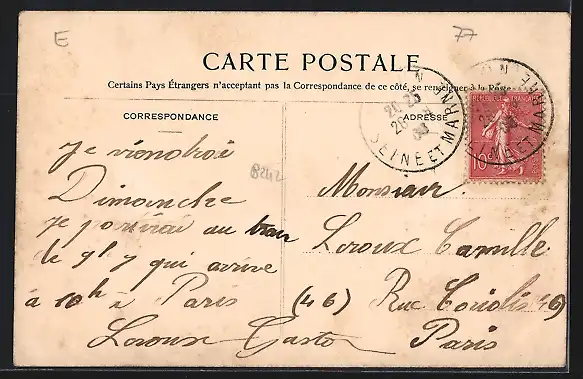 E
77
CARTE POSTALE
Certains Pays Étrangers n'acceptant pas la Correspondance de ce côté, se renseigner à la Poste
CORRESPONDANCE
ADRESSE
SEINE ET MARNE
SEINE ET MARNE
REPUBLIQUE FRANÇAISE
10c
Je viendrai
Dimanche
je partirai au tram
de 9h 7 qui arrive
à 10h à Paris
Leroux Gaston
8242
Monsieur
Leroux Camille
(46) Rue Coriolis 46)
Paris